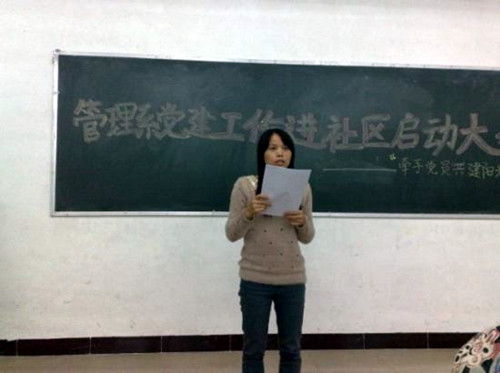 管理系党建工作进社区启动大
——“牵手党员共建阳